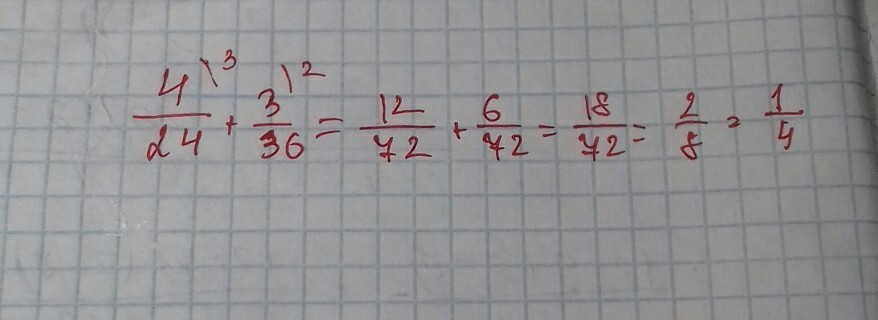 4\3/24 + 3\2/36 = 12/72 + 6/72 = 18/72 = 2/8 = 1/4